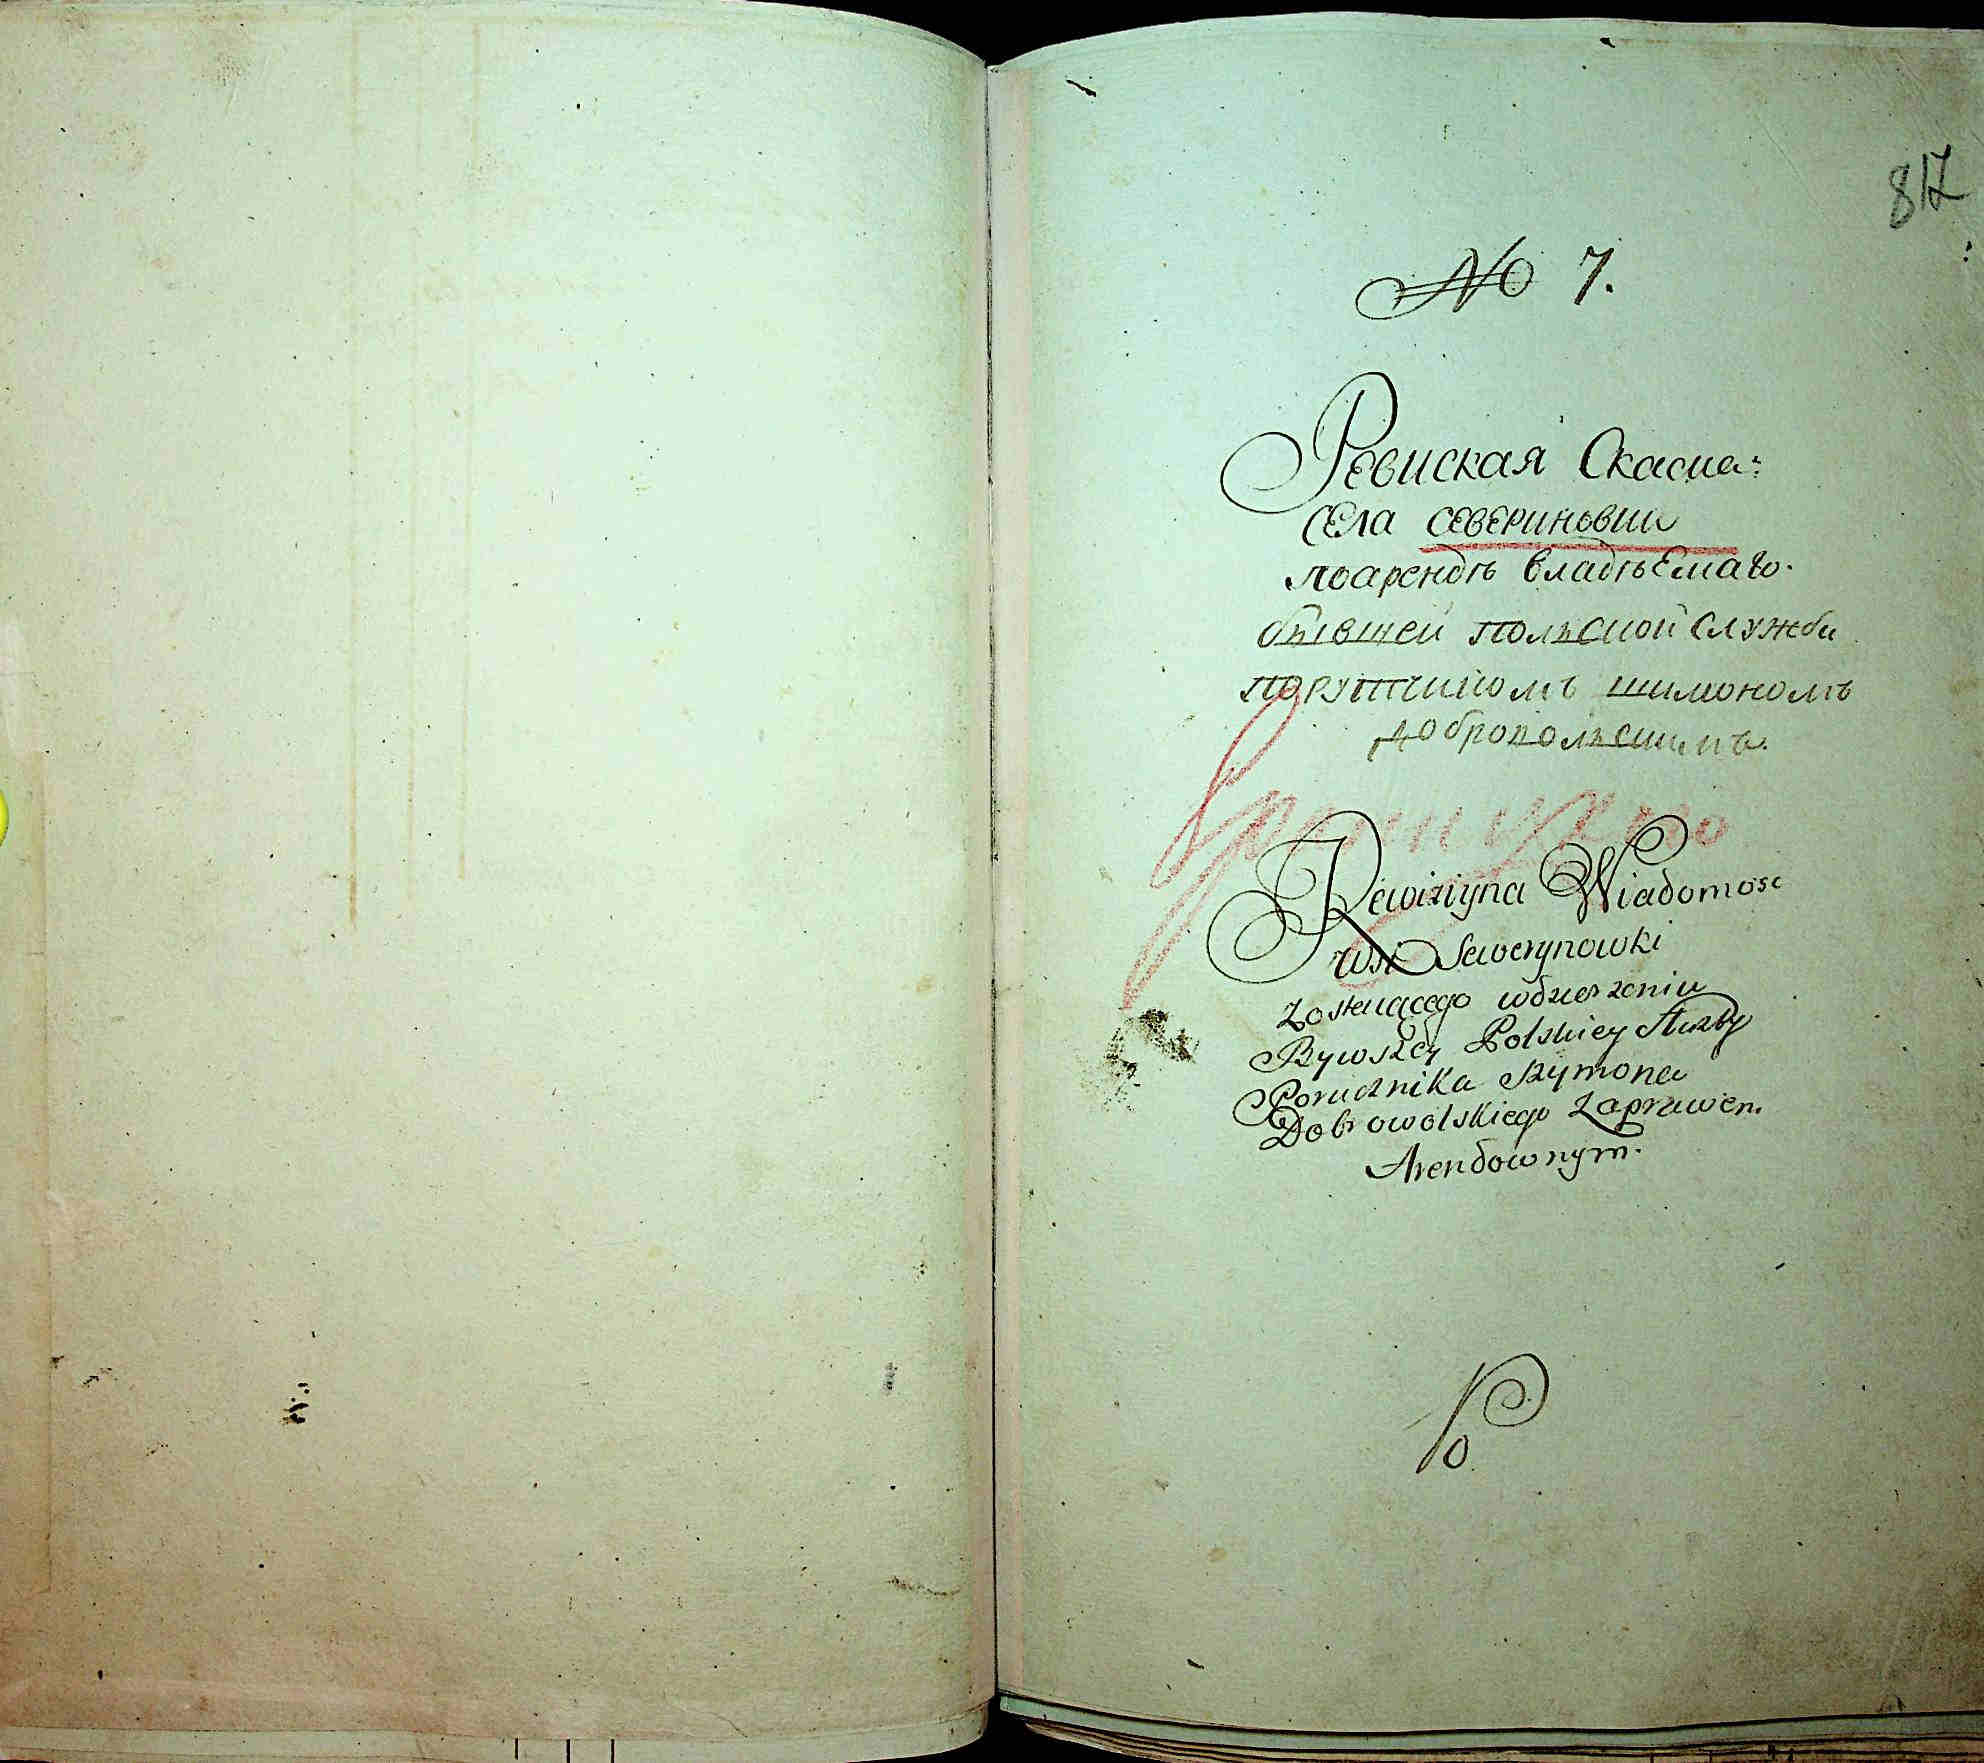 817
No 7.
Ревиская Скаска:
села севериновки
поарендѣ владѣемаго.
бывшей польской службы
порутчикомъ шимономъ
добровольскимъ.
Rewizijna Wiadomosc
wsi Sewerynowki
zostaiącego wdzierzeniu
Bywszey Polskiey służby
Porucznika Szymona
Dobrowolskiego zaprawem
Arendownym.